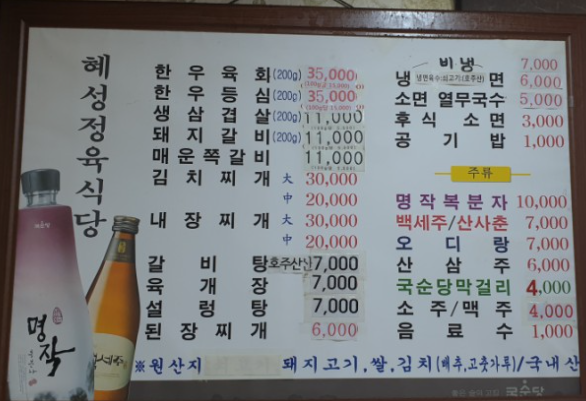 혜성정육식당
한우육회(200g) 35,000
한우등심(200g) 35,000
생삼겹살(200g) 11,000
돼지갈비(200g) 11,000
매운쪽갈비 11,000
김치찌개 大 30,000
中 20,000
내장찌개 大 30,000
中 20,000
갈비탕 호주산 7,000
육개장 7,000
설렁탕 7,000
된장찌개 6,000
비냉 7,000
냉면 냉면육수:쇠고기(호주산) 6,000
소면 열무국수 5,000
후식 소면 3,000
공기밥 1,000
주류
명작복분자 10,000
백세주/산사춘 7,000
오디랑 7,000
산삼주 6,000
국순당막걸리 4,000
소주/맥주 4,000
음료수 1,000
※원산지 돼지고기,쌀,김치(배추,고춧가루)/국내산
명작
백세주
국순당